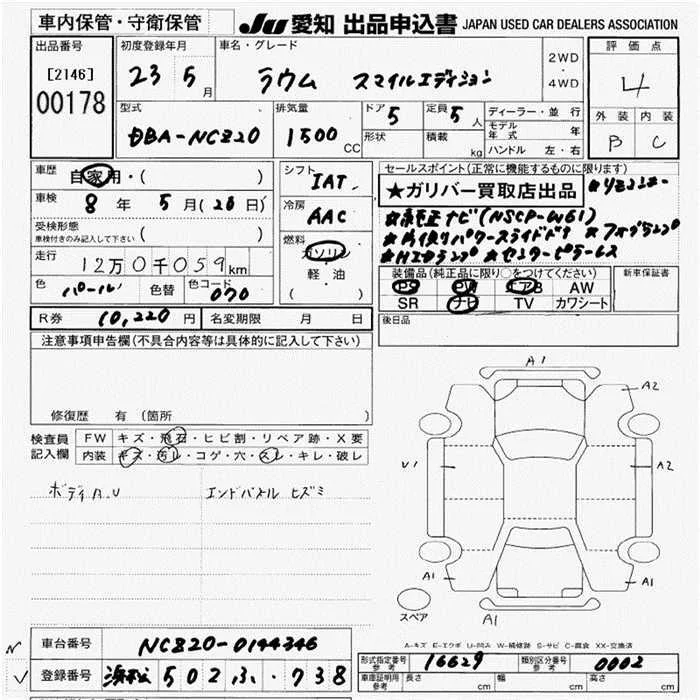 車内保管・守衛保管
JU 愛知 出品申込書 JAPAN USED CAR DEALERS ASSOCIATION
出品番号
[2146]
00178
初度登録年月
23 5月
車名・グレード
ラウム スマイルエディション
2WD
・
4WD
評価点
4
外装 内装
B C
型式
DBA-NCZ20
排気量
1500 CC
ドア 5
形状
定員 5人
積載 kg
ディーラー・並行
モデル年式 年
ハンドル 左・右
車歴 自家用・( )
車検 8年 5月(20日)
受検形態
車検付きのみ記入して下さい ( )
走行 12万0千059km
色 パール 色替 色コード 070
シフト
IAT
冷房
AAC
燃料
ガソリン
軽・油
( )
セールスポイント(正常に機能するものに限ります)
★ガリバー買取店出品
★純正ナビ(NSCP-W61)
★片側パワースライドドア ★フォグランプ
★HIDランプ ★センターピラーレス
装備品(純正品に限り○をつけてください)
PS PW エアB AW
SR ナビ TV カワシート
新車保証書
後日品
R券 10,220円 名変期限 月 日
注意事項申告欄(不具合内容等は具体的に記入して下さい)
修復歴 有(箇所 )
検査員
記入欄
FW キズ・飛石・ヒビ割・リペア跡・X要
内装 キズ・汚レ・コゲ・穴・スレ・キレ・破レ
ボディA.U エンドパネルヒズミ
A1
A2
U1
A2
A1
A1
A1
スペア
A-キズ E-エクボ U-凹み W-補修跡 S-サビ C-腐食 XX-交換済
車台番号 NCZ20-0144346
登録番号 浜松 502 ふ・738
形式指定番号
参考
16629
類別区分番号
参考
0002
車庫証明用
参考
長さ cm 幅 cm 高さ cm